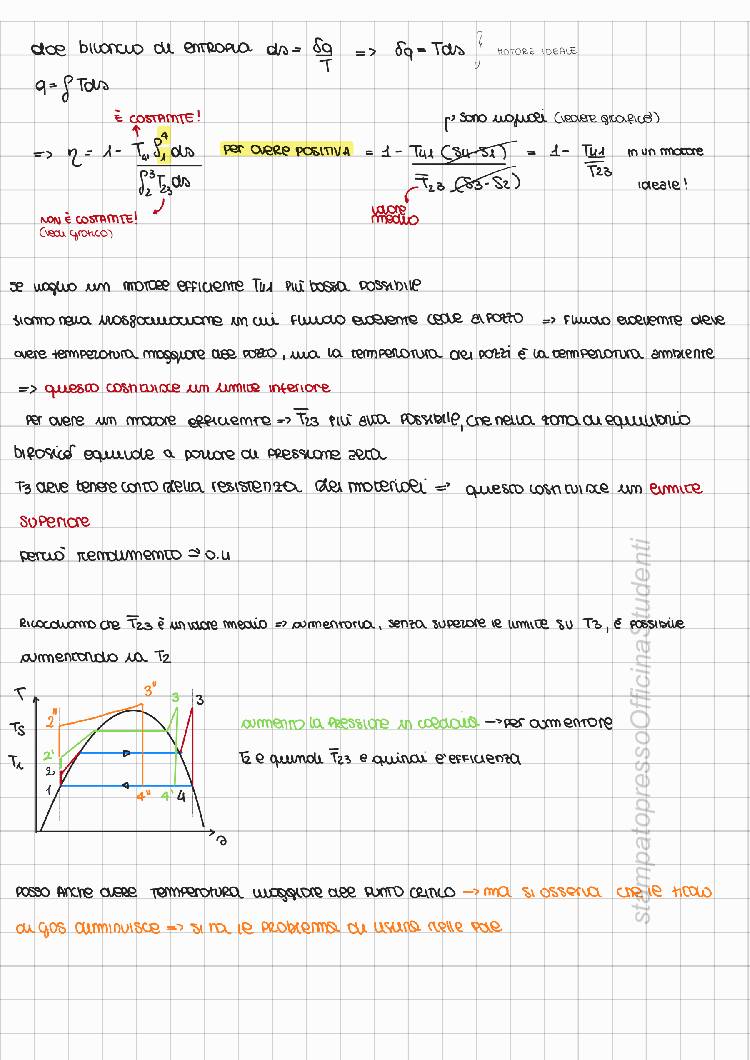 dal bilancio di entropia ds = δq/T => δq = Tds MOTORE IDEALE
q = ∫ Tds
È COSTANTE!
sono uguali (vedere grafico)
=> η = 1 - T41 ∫1^4 ds / ∫2^3 T23 ds PER AVERE POSITIVA = 1 - T41 (S4 - S1) / T̄23 (S3 - S2) = 1 - T41 / T̄23 in un motore
ideale!
NON È COSTANTE!
(vedi grafico)
valore
medio
se voglio un motore efficiente T41 più bassa possibile
siamo nella trasformazione in cui fluido evolvente cede al pozzo => fluido evolvente deve
avere temperatura maggiore del pozzo, ma la temperatura dei pozzi è la temperatura ambiente
=> questo costituisce un limite inferiore
per avere un motore efficiente => T̄23 più alta possibile, che nella zona di equilibrio
bifasico equivale a parlare di pressione
T3 deve tenere conto della resistenza dei materiali => questo costituisce un limite
superiore
perciò rendimento ≃ 0.4
Ricordiamo che T̄23 è un valore medio => aumentarla, senza superare il limite su T3, è possibile
aumentando la T2
T
3"
3
3
2"
T5
2'
T1
2
1
4"
4'
4
s
aumento la pressione in caldaia -> per aumentare
T2 e quindi T̄23 e quindi l'efficienza
posso anche avere temperatura maggiore del punto critico -> ma si osserva che il titolo
di gas diminuisce => si ha il problema di usura nelle pale
stampatopressoOfficinaStudenti